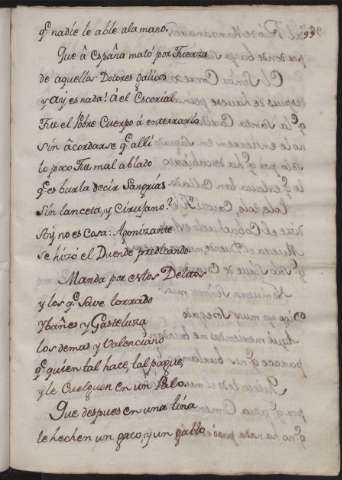 99
q.e nadie le able ala mano,
Que â España matò por Fuerza
de aquellos Dolores Galicos
y Ay es nada! â el Escorial
Fue el Pobre Cuerpo â enterrarlo
sin âcordarse q.e alli
lo poco Fue mal ablado
q.e es burla decir Sangrias
Sin lanceta, y Cirujano?
Soy no es Casa: Agonizante
se hizò el Duende predicando.
Manda por estos Delitos
y los q.e save
Ybañes y Gastelura
los demas y Valenciano
q.e quien tal hace, tal pague,
y le Cuelguen en un Palo.
Que despues en una tina
le hechen un gato, y un gallo